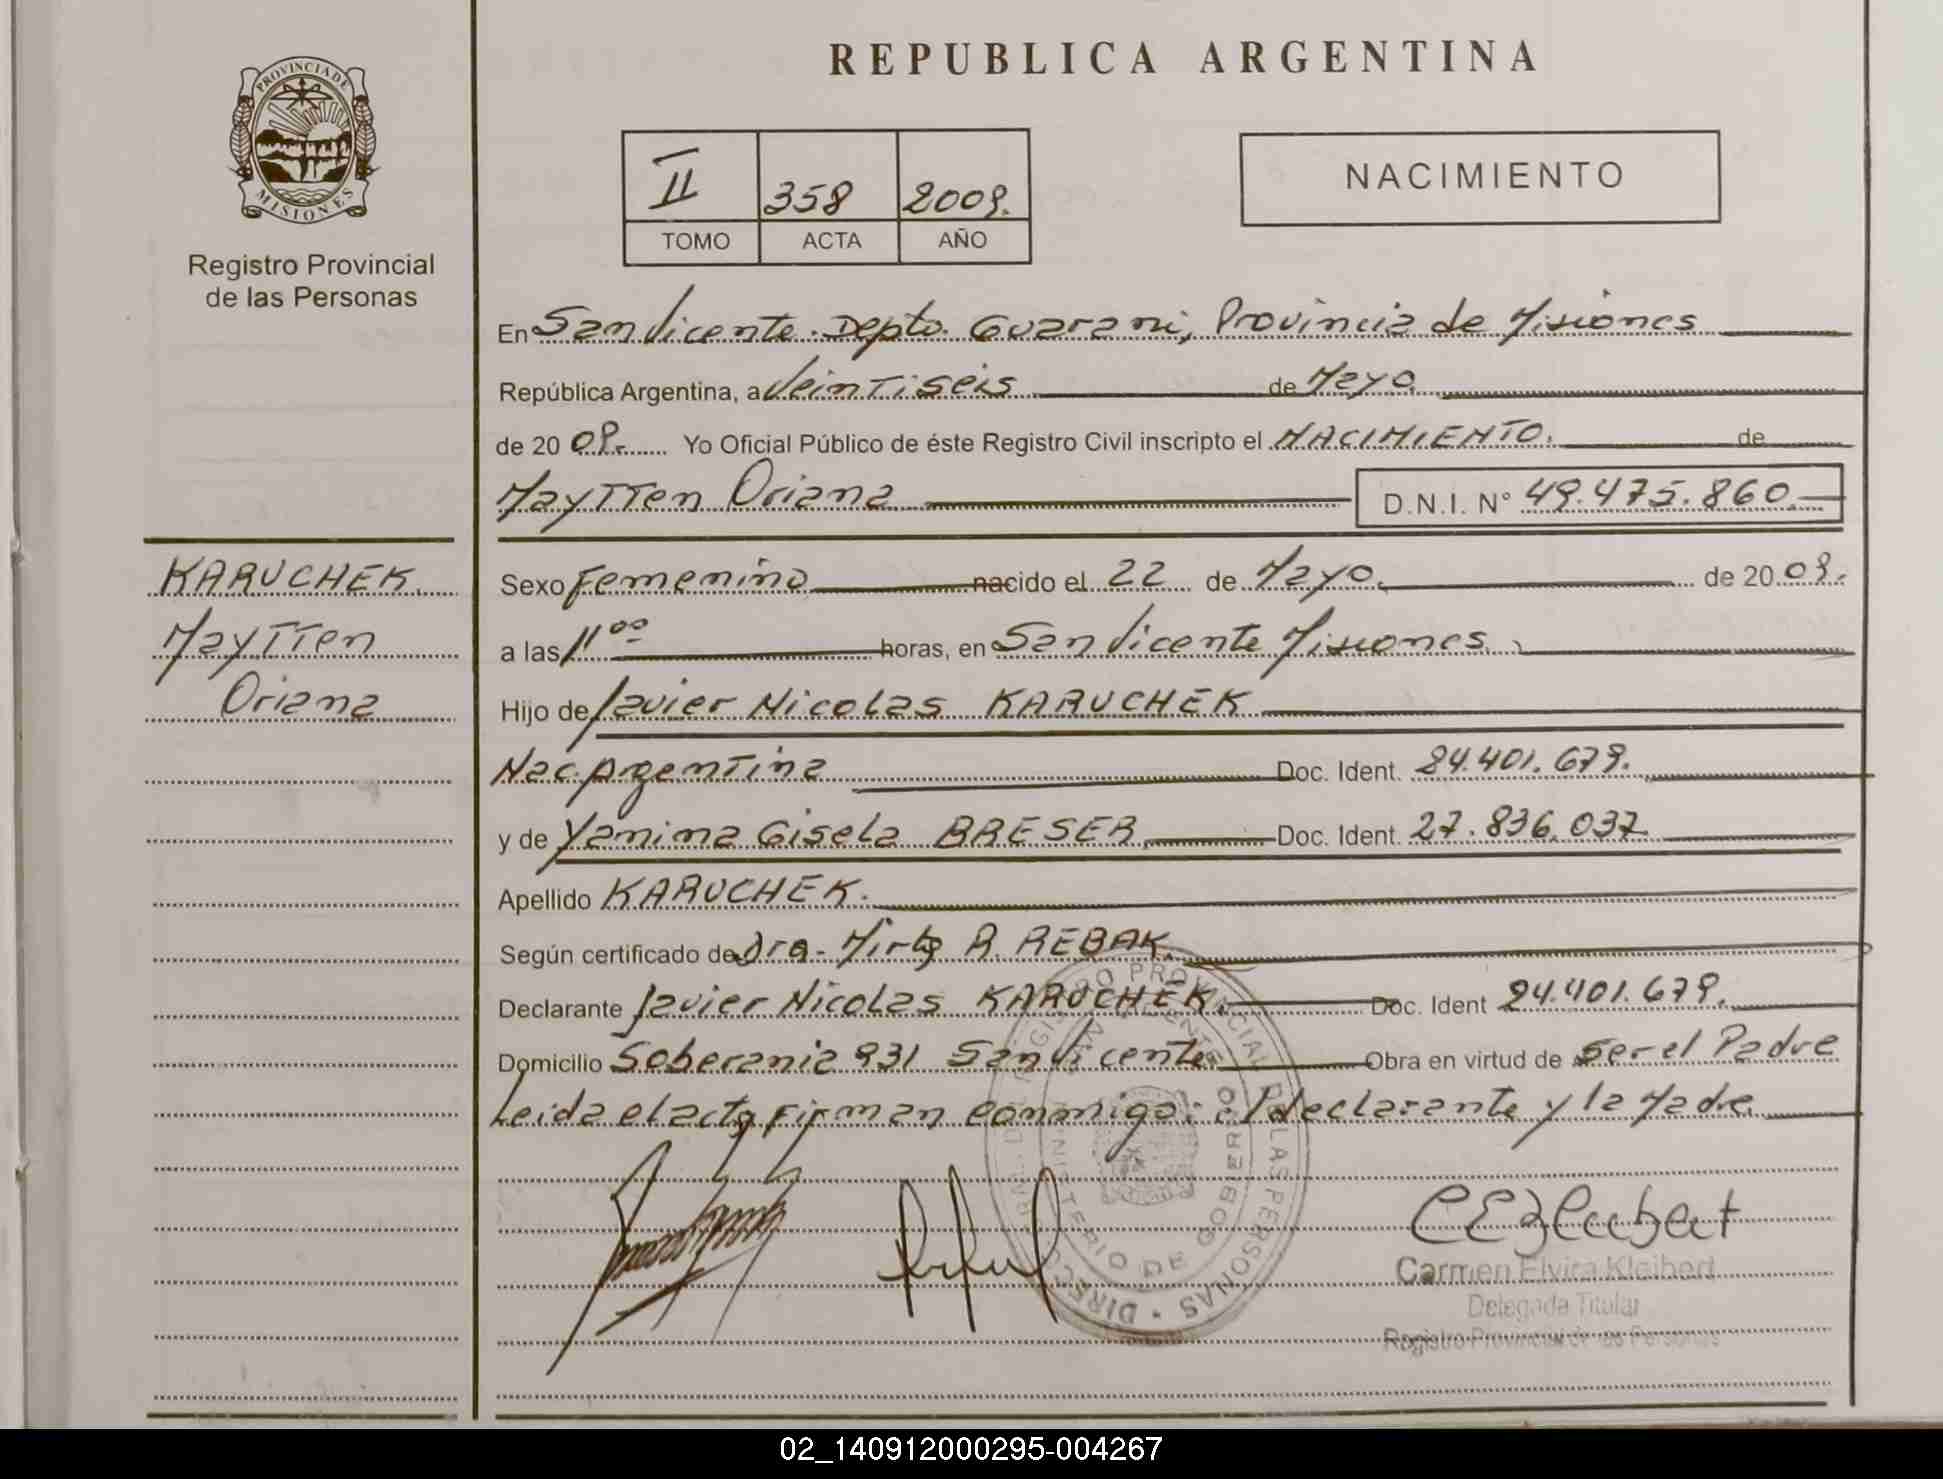 REPUBLICA ARGENTINA
PROVINCIA DE
MISIONES
Registro Provincial
de las Personas
II 358 2009.
TOMO ACTA AÑO
NACIMIENTO
En San Vicente. Depto. Guarani, Provincia de Misiones
República Argentina, a Veintiseis de Mayo.
de 20 09.- Yo Oficial Público de éste Registro Civil inscripto el NACIMIENTO. de
Maytten Oriana D.N.I. N° 49.475.860.
KARUCHEK.
Maytten
Oriana
Sexo Femenino nacido el 22 de Mayo. de 20 09.
a las 11°° horas, en San Vicente Misiones.
Hijo de Javier Nicolas KARUCHEK
Nac. Argentina Doc. Ident. 24.401.679.
y de Yanina Gisela BRESER. Doc. Ident. 27.836.037
Apellido KARUCHEK.
Según certificado de Dra. Mirta R. REBAK.
Declarante Javier Nicolas KARUCHEK. Doc. Ident 24.401.679.
Domicilio Soberania 931 San Vicente Obra en virtud de ser el Padre
Leida el acta firman conmigo: el declarante y la Madre.
DIRECC PROVINCIAL DE LAS PERSONAS
SAN VICENTE
MINISTERIO DE GOBIERNO
Carmen Elvira Kleibert
Delegada Titular
Registro Provincial de las Personas
02_140912000295-004267